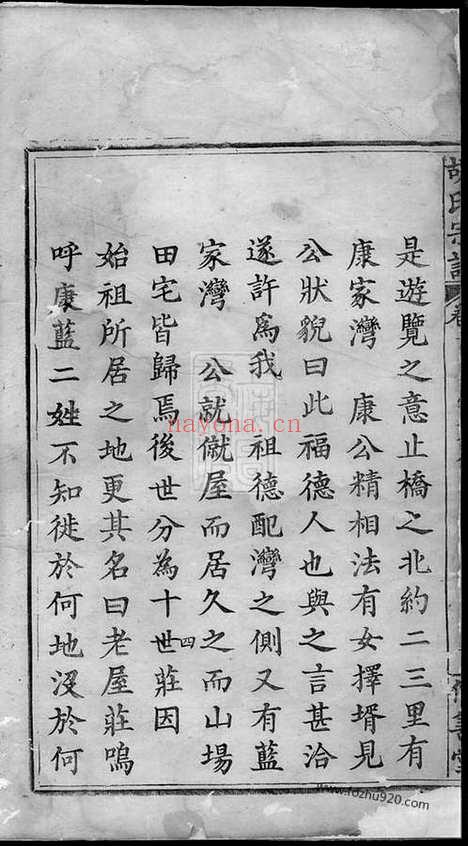 胡氏宗譜
是遊覽之意止橋之北約二三里有
康家灣　康公精相法有女擇壻見
公狀貌曰此福德人也與之言甚洽
遂許爲我　祖德配灣之側又有藍
家灣　公就僦屋而居久之而山場
田宅皆歸焉後世分為十四世莊因
始祖所居之地更其名曰老屋莊嗚
呼康藍二姓不知徙於何地沒於何
nayona.cn
www.fozhu920.com